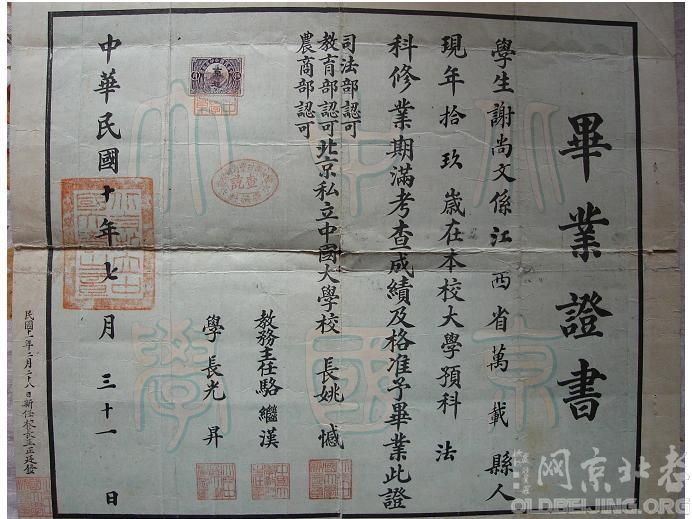 畢業證書
學生謝尚文係江西省萬載縣人
現年拾玖歲在本校大學預科 法
科修業期滿考查成績及格准予畢業此證
司法部認可
教育部認可北京私立中國大學校 長姚 憾
農商部認可
教務主任駱繼漢
學 長光 昇
中華民國十年七月三十一日
民國十一年二月二十八日新任校長王正廷發
北京
中國
大學
老北京网
OLDBEIJING.ORG